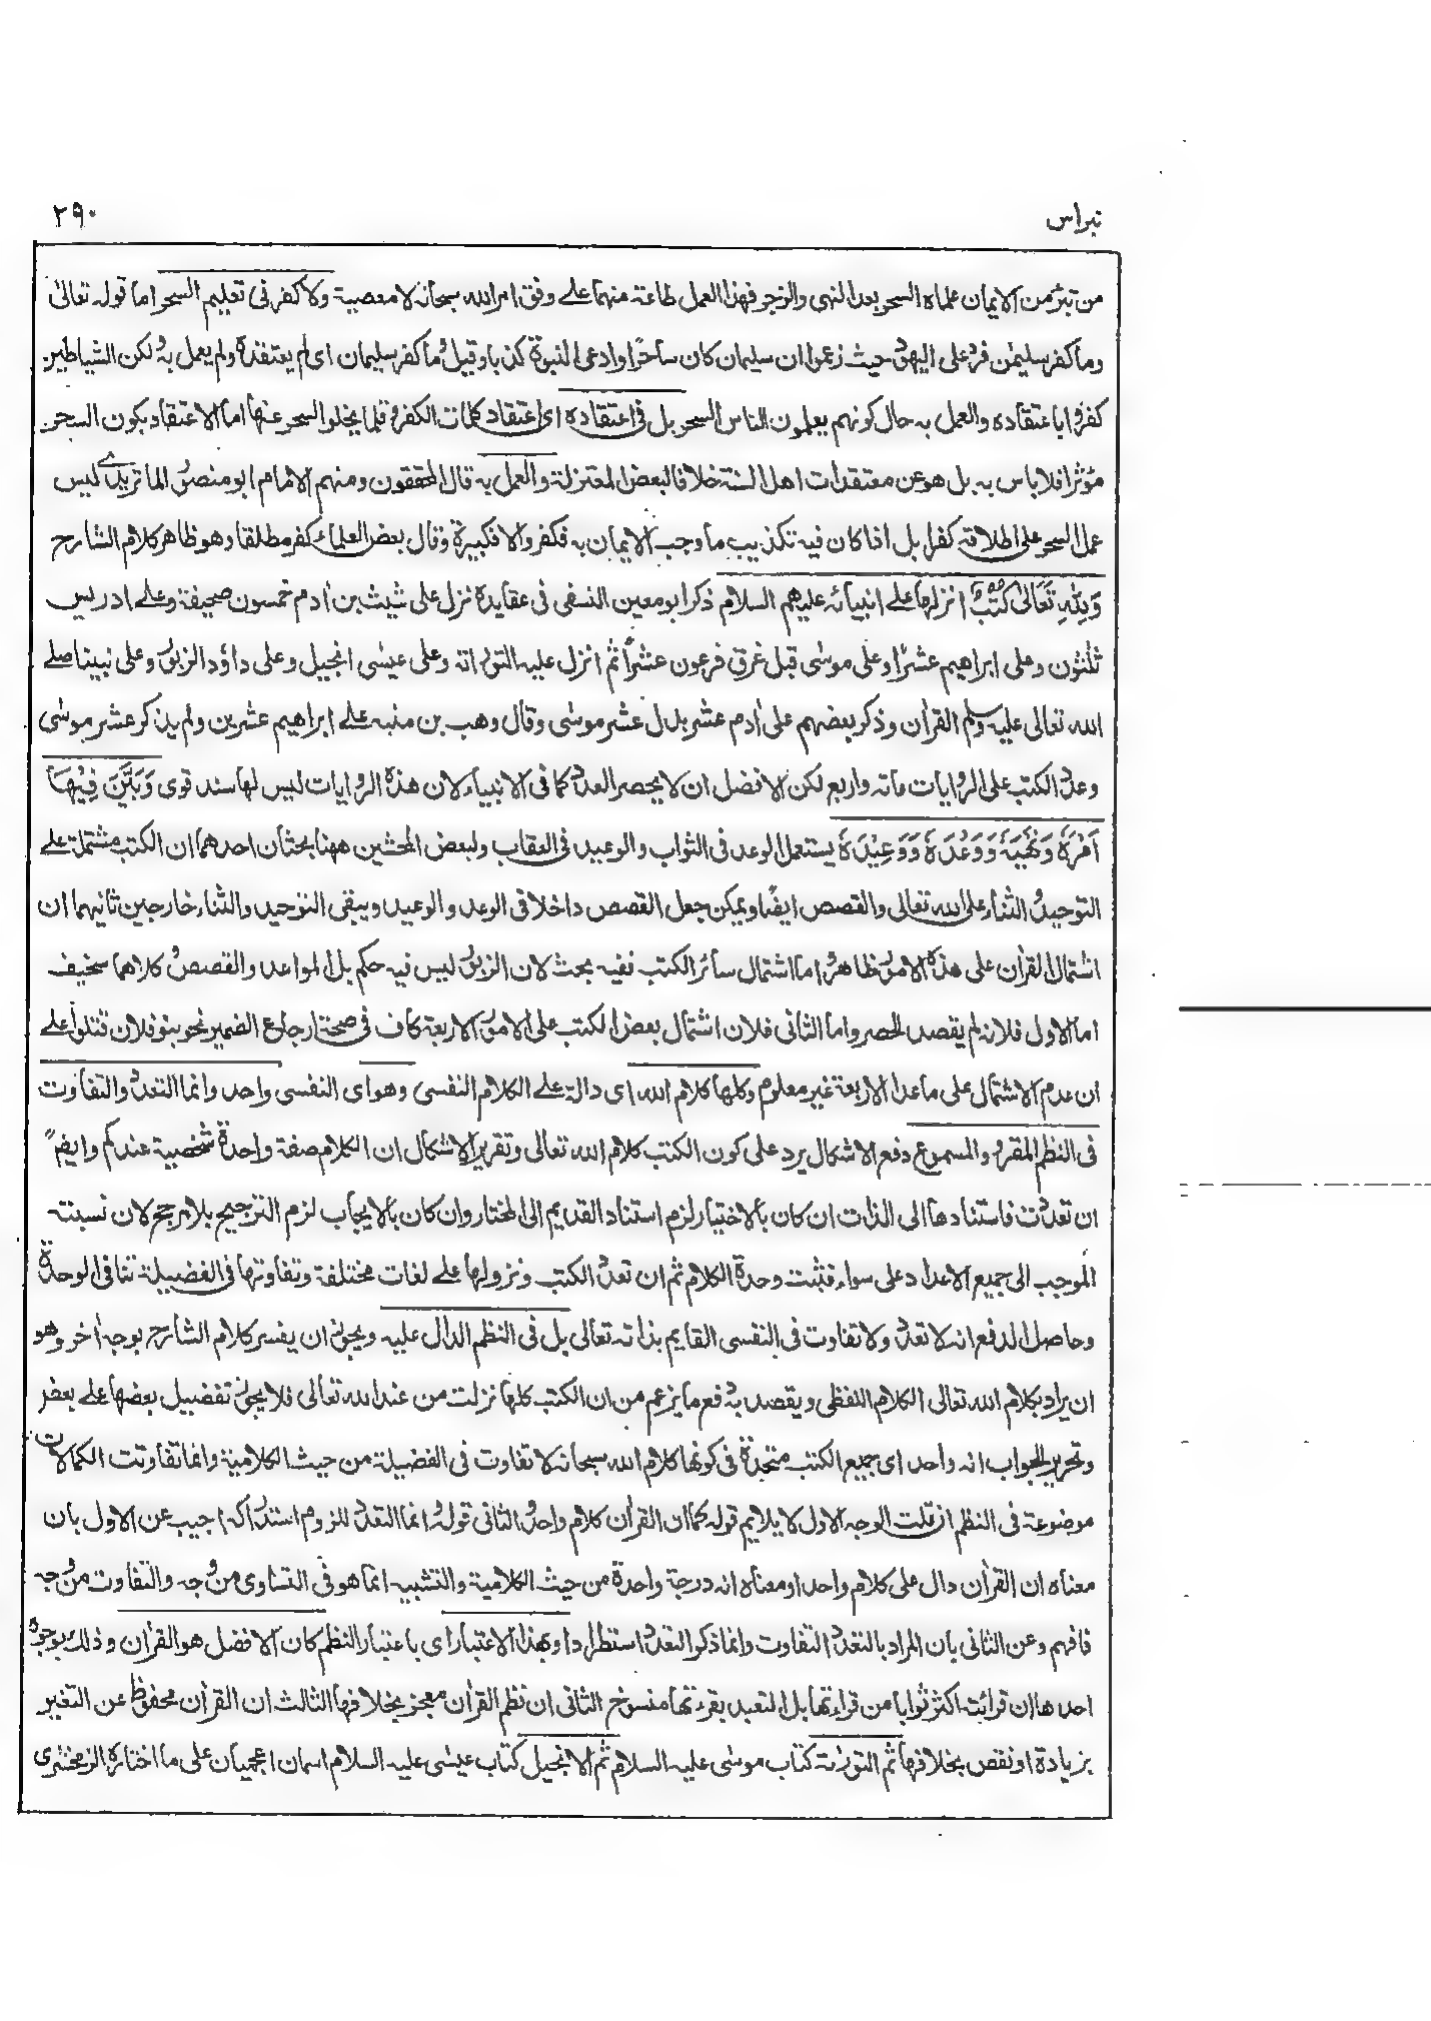 نبراس
٢٩٠
من تبرّ من الايمان علماه السحر بعد النهى والزجر فهذا العمل طاعة منهما علے وفق امر الله سبحانه لا معصية ولا كفر فى تعليم السحر اما قوله تعالىٰ
وما كفر سليمٰن فرد على اليهود حيث زعموا ان سليمان كان ساحرًا وادعى النبوة كذبا وقيل ما كفر سليمان اى لم يعتقده ولم يعمل به ولكن الشياطين
كفروا باعتقاده والعمل به حال كونهم يعلمون الناس السحر بل فى اعتقاده اى اعتقاد كلمات الكفر وقلما يخلو السحر عنها اما الاعتقاد بكون السحر
مؤثرا فلا باس به بل هو عن معتقدات اهل السنة خلافا لبعض المعتزلة والعمل به قال المحققون ومنهم الامام ابو منصور الماتريدے ليس
عمل السحر على اطلاقه كفرا بل اذا كان فيه تكذيب ما وجب الايمان به فكفر والا فكبيرة وقال بعض العلماء كفر مطلقا وهو ظاهر كلام الشارح
وَلِلّٰهِ تَعَالىٰ كُتُبٌ انزلها علے انبيائه عليهم السلام ذكر ابو معين النسفى فى عقايده نزل على شيث بن ادم خمسون صحيفة وعلے ادريس
ثلثون وعلى ابراهيم عشرًا وعلى موسٰى قبل غرق فرعون عشرًا ثم انزل عليه التورٰاته وعلى عيسٰى انجيل وعلى داؤد الزبور وعلى نبينا صلے
الله تعالى عليه وسلم القرآن وذكر بعضهم على اٰدم عشر بدل عشر موسٰى وقال وهب بن منبه علے ابراهيم عشرين ولم يذكر عشر موسٰى
وعدد الكتب على الروايات مائه واربع لكن الافضل ان لا يحصر العدد كما فى الانبياء لان هذه الروايات ليس لها سند قوى وَبَيَّنَ فِيْهَا
اَمْرَهٗ وَنَهْيَهٗ وَوَعْدَهٗ وَوَعِيْدَهٗ يستعمل الوعد فى الثواب والوعيد فى العقاب ولبعض المحشين ههنا بحثان احدهما ان الكتب مشتملة علے
التوحيد والثناء على الله تعالى والقصص ايضًا ويمكن جعل القصص داخلا فى الوعد والوعيد ويبقى التوحيد والثناء خارجين ثانيهما ان
اشتمال القراٰن على هذه الامور ظاهر واما اشتمال سائر الكتب ففيه بحث لان الزبور ليس فيه حكم بل المواعد والقصص وكلاهما سخيف
اما الاول فلانه لم يقصد الحصر واما الثانى فلان اشتمال بعض الكتب على الامور الاربعة كاف فى صحة ارجاع الضمير نحو بنو فلان قتلوا علے
ان عدم الاشتمال على ما عدا الاربعة غير معلوم وكلها كلام الله اى دالة علے الكلام النفسى وهو اى النفسى واحد وانما التعدد والتفاوت
فى النظم المقرو والمسموع دفع الاشكال يرد على كون الكتب كلام الله تعالى وتقرير الاشكال ان الكلام صفة واحدة شخصية عندكم وايضًا
ان تعددت فاستنادها الى الذات ان كان بالاختيار لزم استناد القديم الى المختار وان كان بالايجاب لزم الترجيح بلا مرجح لان نسبته
الموجب الى جميع الاعداد على سواء فثبت وحدة الكلام ثم ان تعدد الكتب ونزولها علے لغات مختلفة وتفاوتها فى الفضيلة تنافى الوحدة
وحاصل الدفع انه لا تعدد ولا تفاوت فى النفسى القايم بذاته تعالى بل فى النظم الدال عليه ويجوز ان يفسر كلام الشارح بوجه اٰخر وهو
ان يراد بكلام الله تعالى الكلام اللفظى ويقصد به دفع ما يزعم من ان الكتب كلها نزلت من عند الله تعالى فلا يجوز تفضيل بعضها علے بعض
وتحرير الجواب انه واحد اى جميع الكتب متحدة فى كونها كلام الله سبحانه لا تفاوت فى الفضيلة من حيث الكلامية وانما تفاوتت الكمالات
موضوعة فى النظم ان قلت الوجه الاول لا يلايم قوله كما ان القراٰن كلام واحد والثانى قوله وانما التعدد للزوم استدراكه اجيب عن الاول بان
معناه ان القراٰن دال على كلام واحد او معناه انه درجة واحدة من حيث الكلامية والتشبيه انما هو فى التساوى من وجه والتفاوت من وجه
فافهم وعن الثانى بان المراد بالتعدد التفاوت وانما ذكر التعدد استطرادا وبهذا الاعتبار اى باعتبار النظم كان الافضل هو القراٰن وذلك بوجوه
احدها ان قرائته اكثر ثوابا من قراءتها بل التعبد بقرءتها منسوخ الثانى ان نظم القراٰن معجز بخلافها الثالث ان القراٰن محفوظ عن التغير
بزيادة او نقص بخلافها ثم التورٰية كتاب موسٰى عليه السلام ثم الانجيل كتاب عيسٰى عليه السلام اسمان اعجميان على ما اختاره الزمخشرى